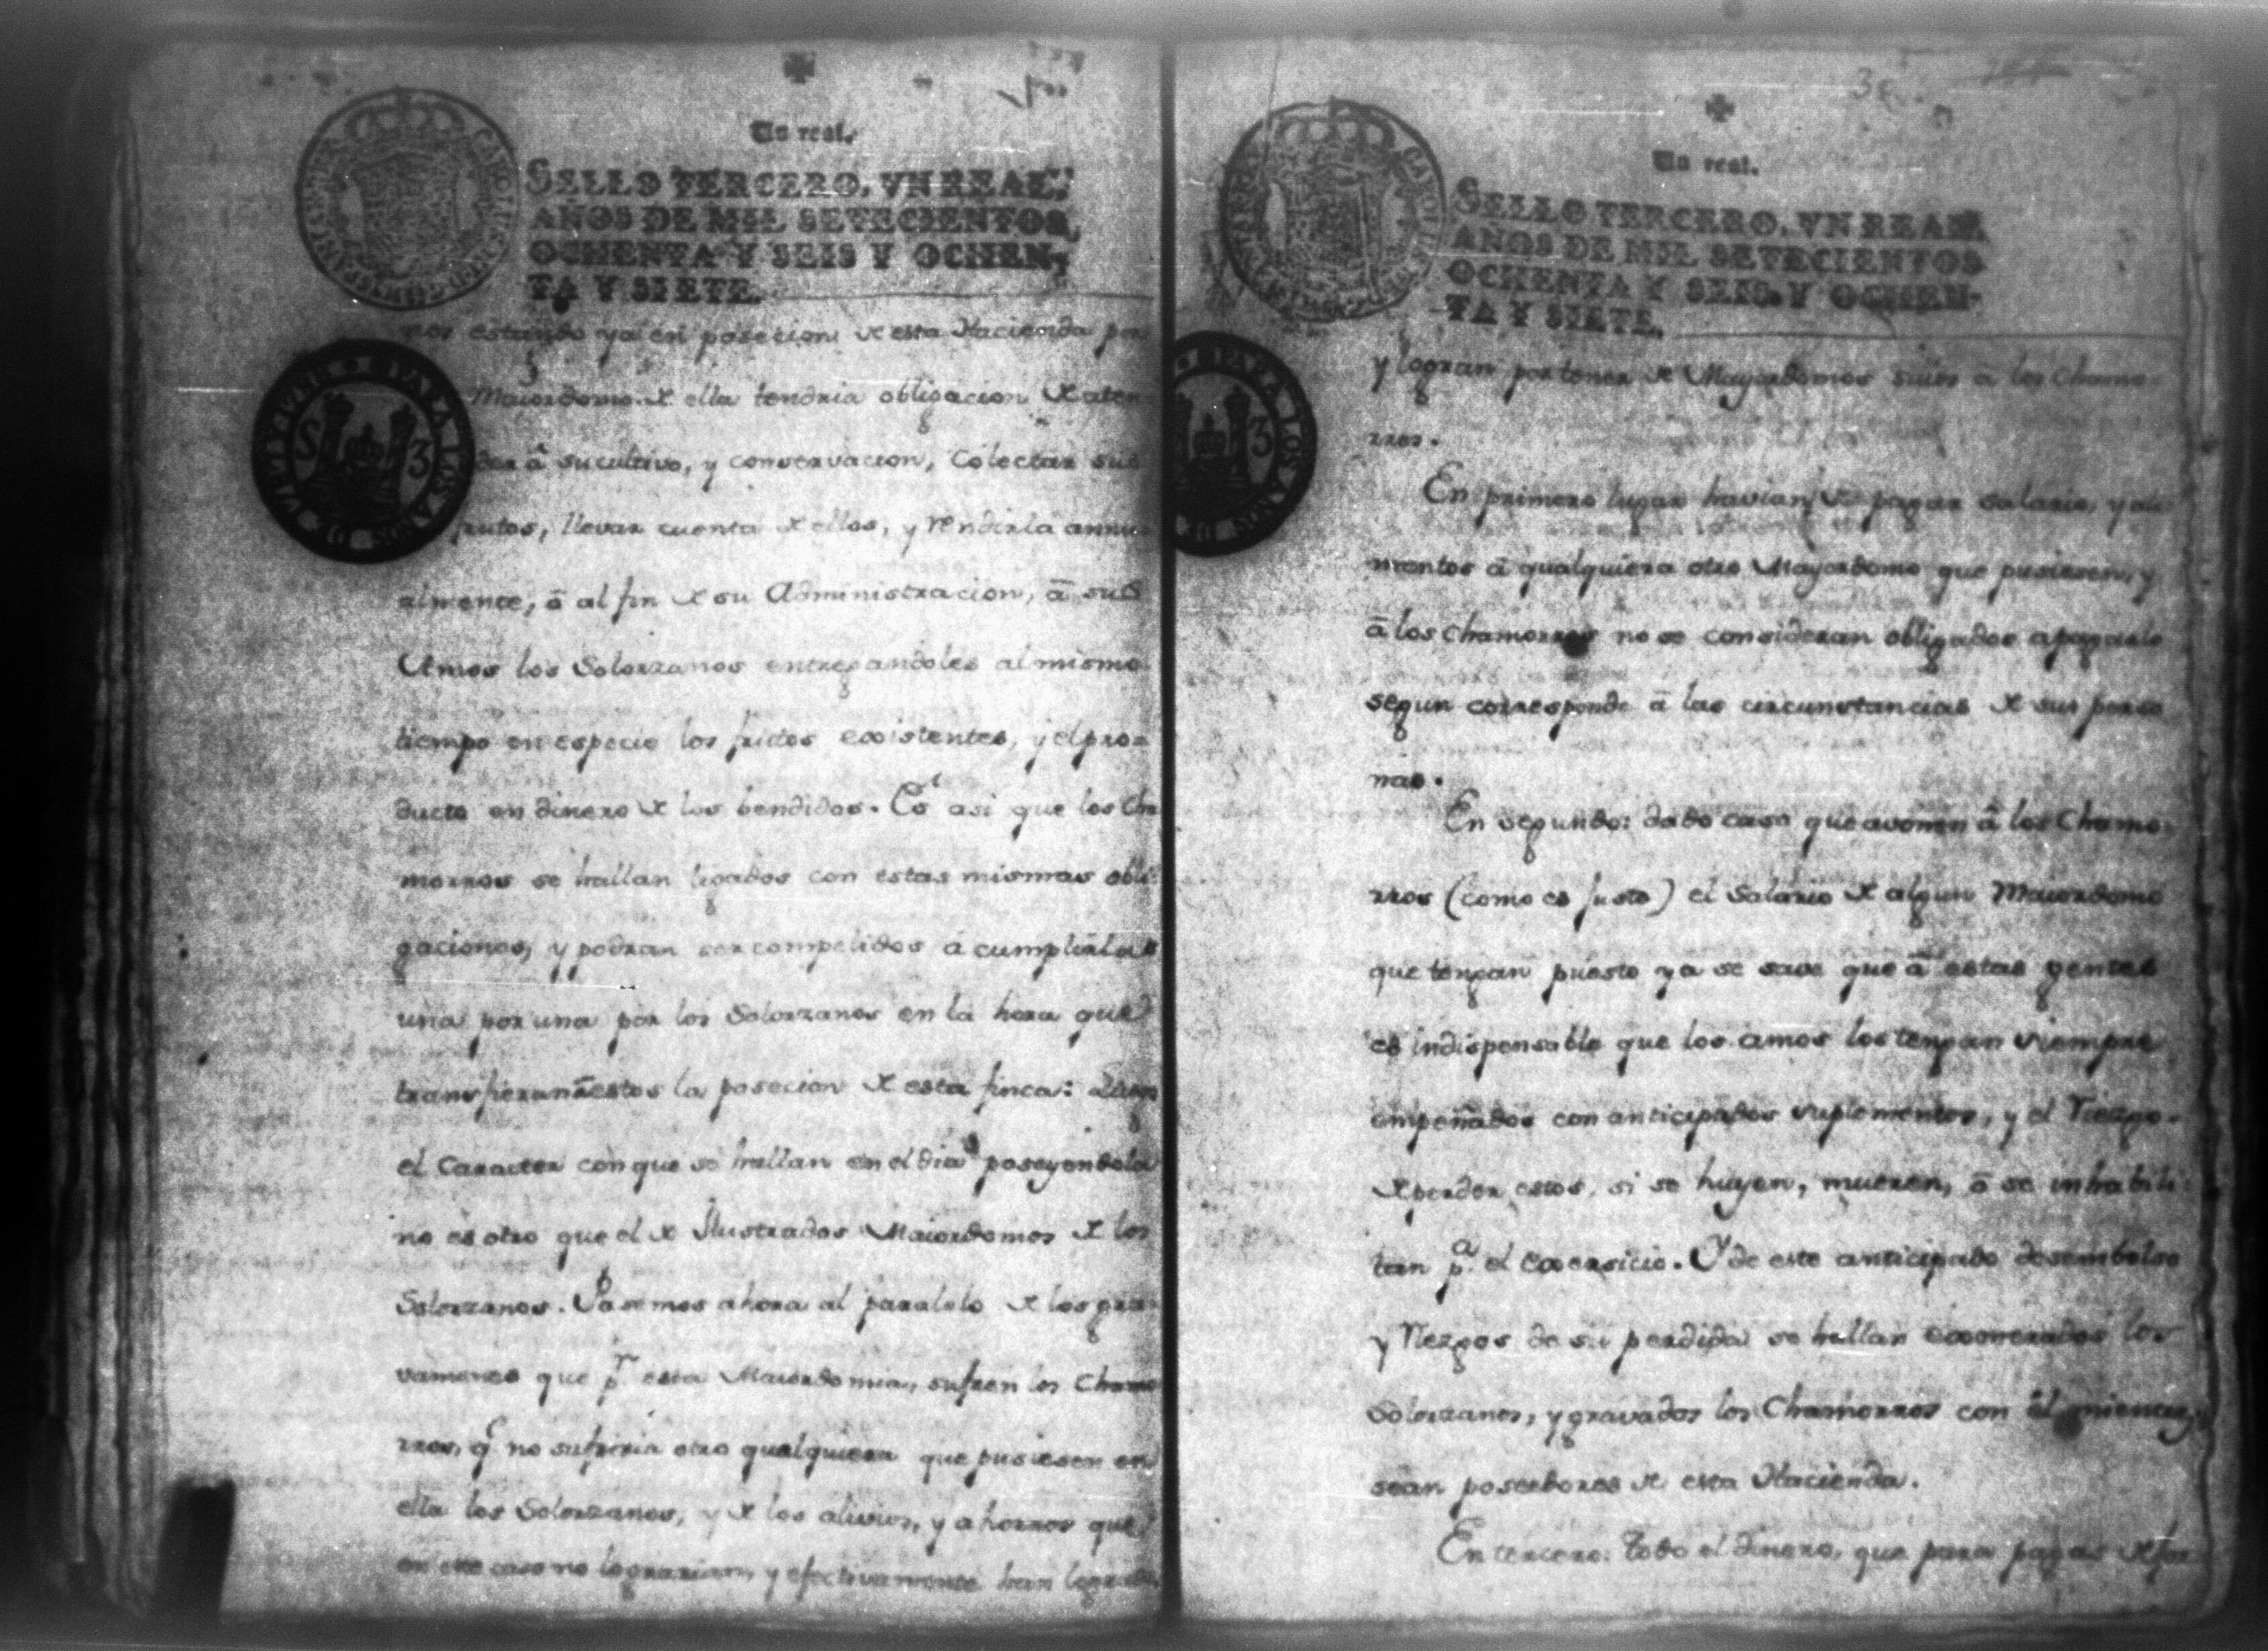 Un real.
SELLO TERCERO, VN REAL,
AÑOS DE MIL SETECIENTOS,
OCHENTA Y SEIS Y OCHEN-
TA Y SIETE.
S 3
PARA LOS AÑOS DE
nos estando ya en posecion de esta Hacienda por
Maiordomo de ella tendria obligacion de aten
der â su cultivo, y conservacion, Colectar sus
frutos, llevar cuenta de ellos, y rendirla annu
almente, ô al fin de su Administracion, â sus
Amos los Solorzanos entregandoles al mismo
tiempo en especie los frutos existentes, y el pro-
ducto en dinero de los bendidos. Es asi que los Cha
morros se hallan ligados con estas mismas obli
gaciones, y podran ser compelidos â cumplirlas
una por una por los Solorzanos en la hora que
transfieran â estos la posecion de esta finca:
el Caracter con que se hallan en el dia poseyendola
no es otro que el de Ilustrados Maiordomos de los
Solorzanos. Pasemos ahora al paralelo de los gra-
vamenes que pr. esta Maiordomia, sufren los Chamo
rros, q.e no sufriria otro qualquiera que pusiesen en
ella los Solorzanos, y de los alivios, y ahorros que
en ese caso no lograrian, y efectivamente han logrado
Un real.
SELLO TERCERO, VN REAL
AÑOS DE MIL SETECIENTOS
OCHENTA Y SEIS Y OCHEN-
TA Y SIETE.
3
PARA LOS AÑOS DE
y logran por tener de Mayordomos suios â los Chamo-
rros.
En primero lugar havian de pagar salario, y ali
mentos â qualquiera otro Mayordomo que pusiesen, y
â los Chamorros no se consideran obligados a pagarlo
segun corresponde â las circunstancias de sus perso
nas.
En segundo: dado caso que avonen â los Chamo-
rros (como es justo) el Salario de algun Maiordomo
que tengan puesto ya se save que â estas gentes
es indispensable que los amos los tengan siempre
empeñados con anticipados suplementos, y el riezgo
de perder estos, si se huyen, mueren, ô se inhabili-
tan p.a el Exersicio. Y de este anticipado desembolso
y riezgos de su perdida se hallan exonerados los
Solorzanos, y gravados los Chamorros con êl mientras
sean poseedores de esta Hacienda.
En tercero: Todo el dinero, que para pagas de